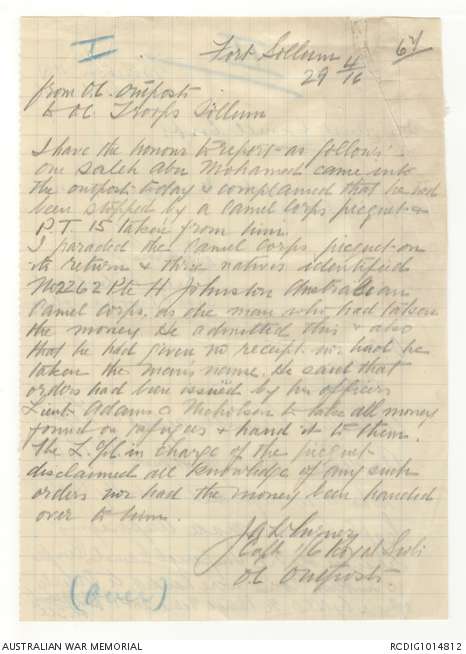 I
Fort Sollum
29 4/16
from O.C. Outposts
to O.C. Troops Sollum
I have the honour to report as follows.
One Saleh Abu Mohamed came into
the outposts today & complained that he had
been stopped by a Camel Corps picquet &
P.T. 15 taken from him.
I paraded the Camel Corps picquet on
its return & three natives identified
No 2262 Pte H Johnston Australian
Camel Corps. as the man who had taken
the money He admitted this & also
that he had given no receipt nor had he
taken the man's name. He said that
orders had been issued by his officers
Lieuts Adams & Nicholson to take all money
found on refugees & hand it to them.
The L. Cpl. in charge of the picquet
disclaimed all knowledge of any such
orders nor had the money been handed
over to him.
Capt Royal
O.C. Outposts
(over)
AUSTRALIAN WAR MEMORIAL
RCDIG1014812